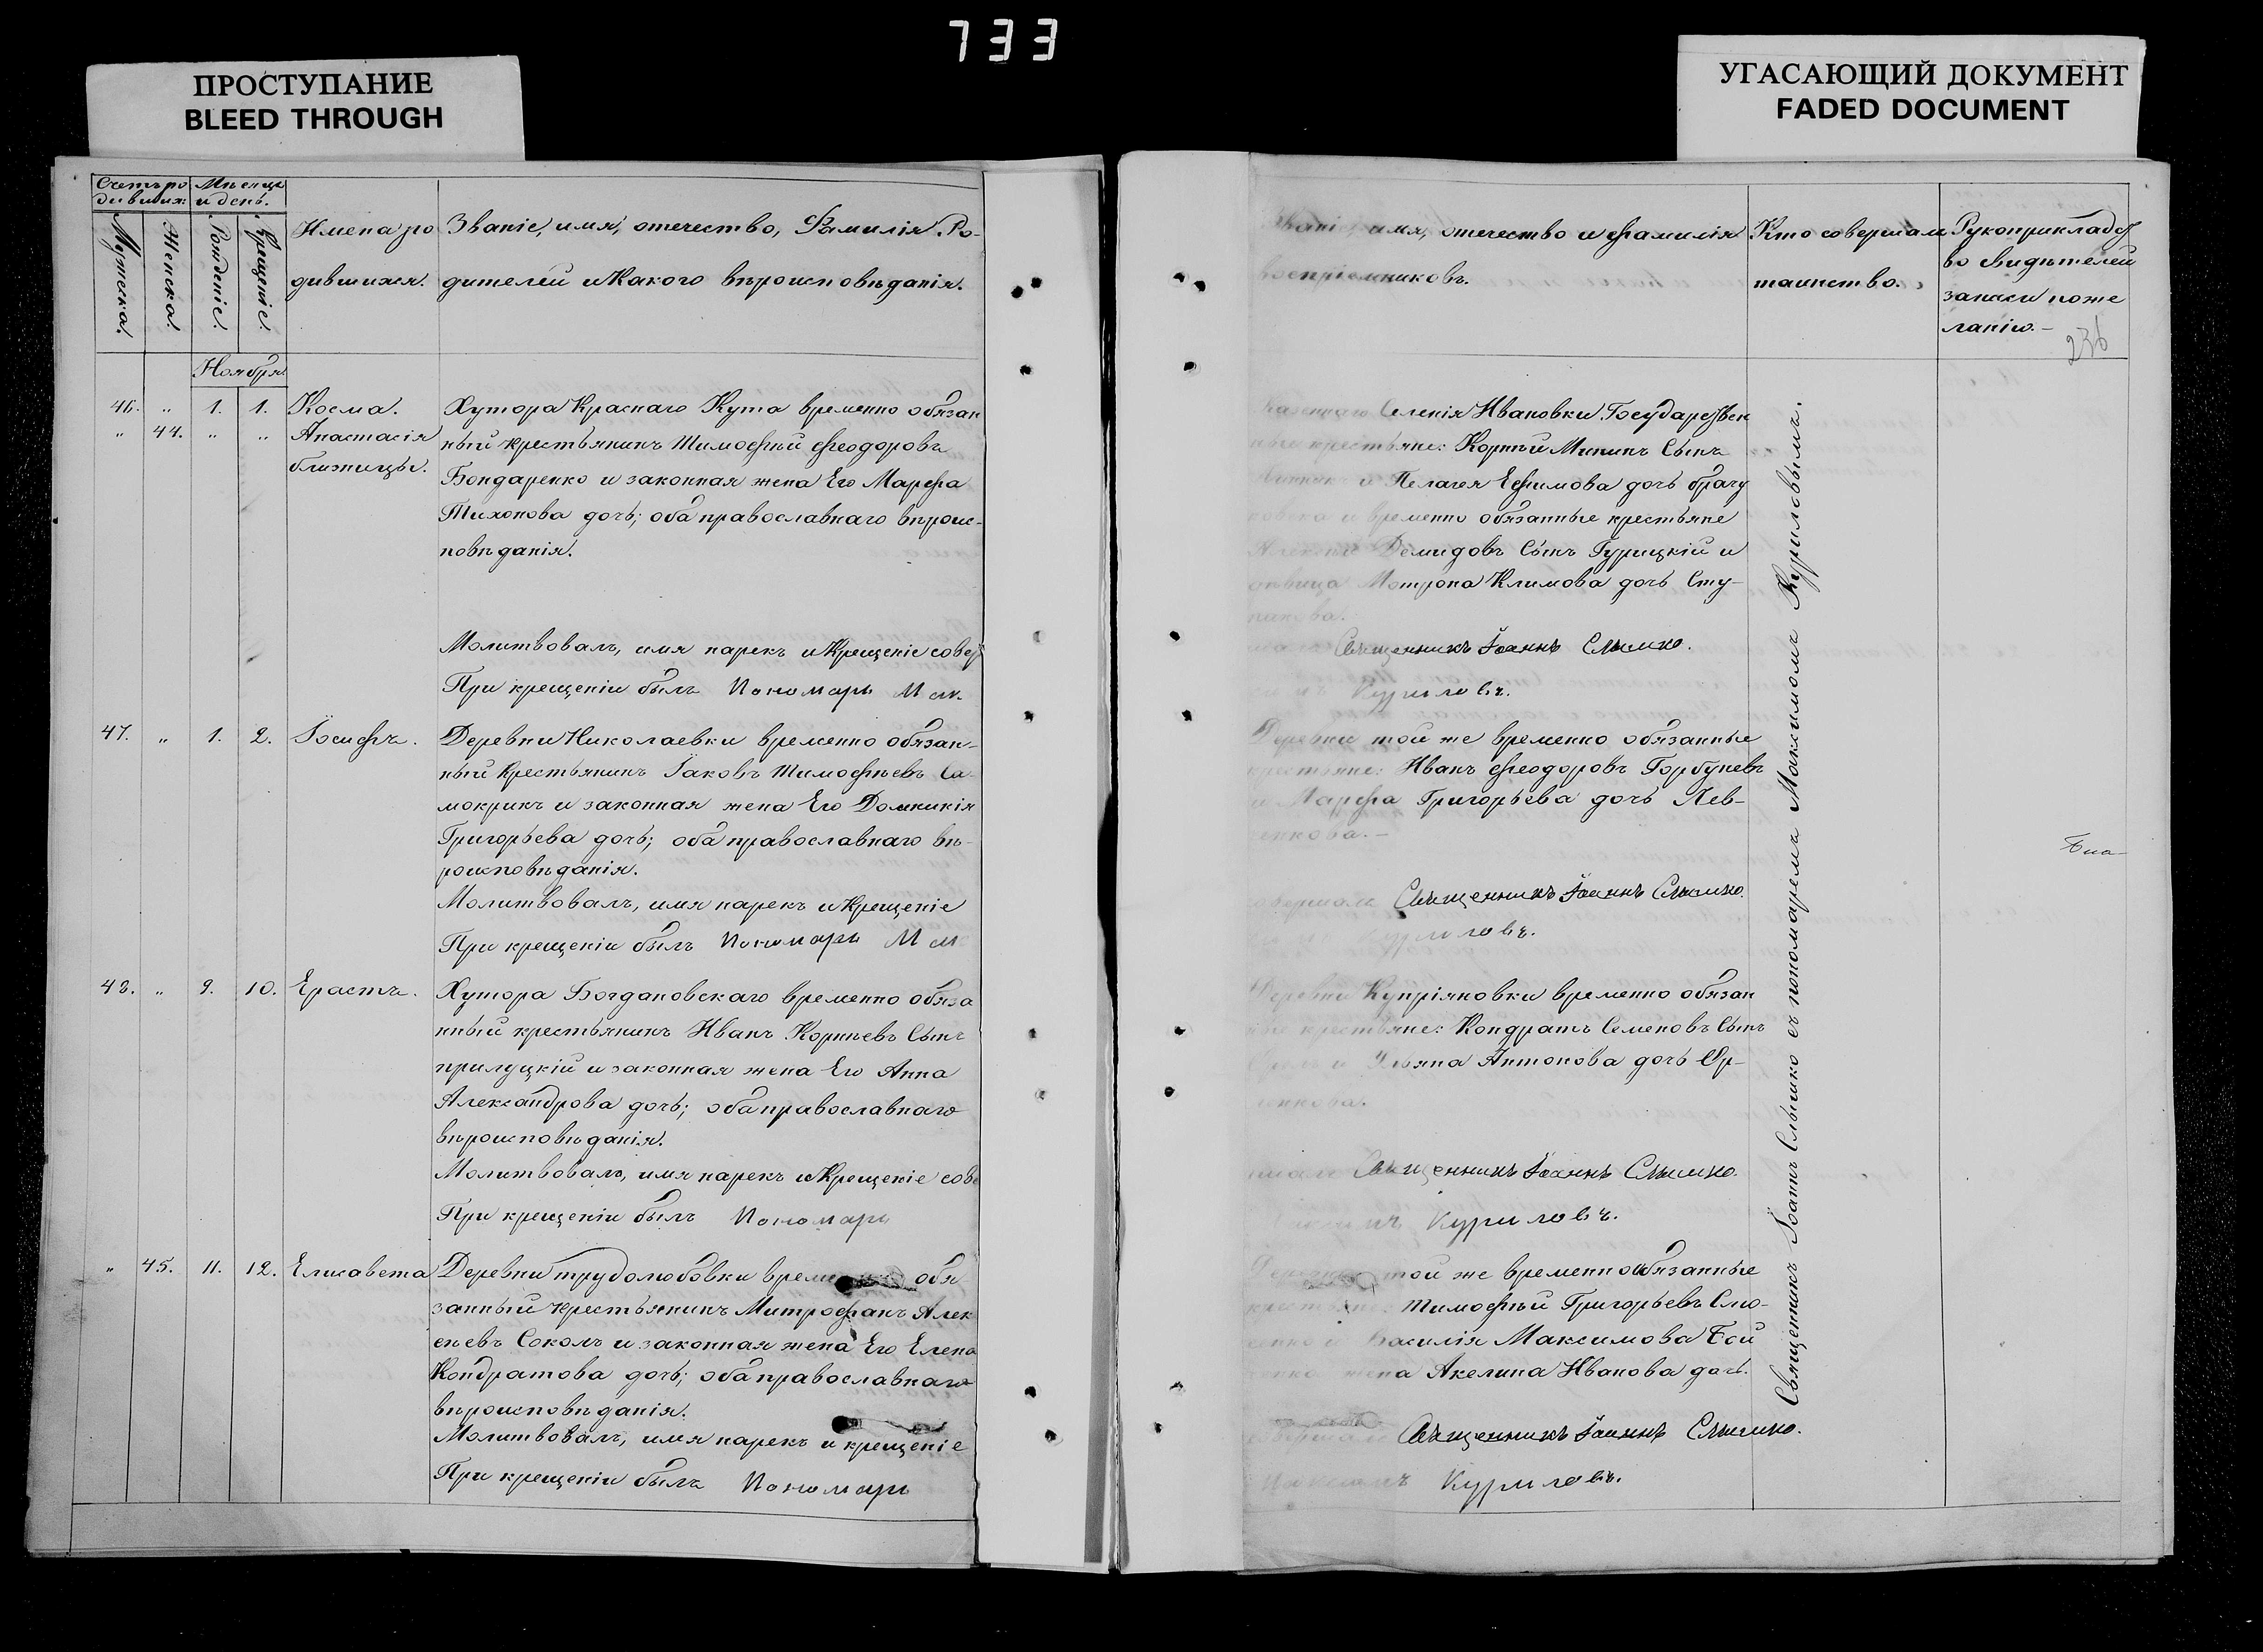 733
ПРОСТУПАНИЕ
BLEED THROUGH
УГАСАЮЩИЙ ДОКУМЕНТ
FADED DOCUMENT
Счетъ ро Мѣсяцъ
дившихъ и день.
Мужеска. Женска. Рожденіе. Крещеніе.
Имена ро
дившихся.
Званіе, имя, отечество, Фамилія Ро-
дителей и Какого вѣроисповѣданія.
Ноября
46. „ 1. 1. Косма. Хутора Краснаго Кута временно обязан
„ 44. „ „ Анастасія ный крестьянинъ Тимофѣй Феодоровъ
близнецы. Бондаренко и законная жена Его Марфа
Тихонова дочь; оба православнаго вѣроис-
повѣданія.
Молитвовалъ, имя нарекъ и Крещеніе совер
При крещеніи былъ Пономарь Мак
47. „ 1. 2. Іосифъ. Деревни Николаевки временно обязан-
ный крестьянинъ Іаковъ Тимофѣевъ Са-
мокрикъ и законная жена Его Домникія
Григорьева дочь; оба православнаго вѣ-
роисповѣданія.
Молитвовалъ, имя нарекъ и Крещеніе
При крещеніи былъ Пономарь Мак
48. „ 9. 10. Ерастъ. Хутора Богдановскаго временно обяза
нный крестьянинъ Иванъ Корнѣевъ Сынъ
прилуцкій и законная жена Его Анна
Александрова дочь; оба православнаго
вѣроисповѣданія.
Молитвовалъ, имя нарекъ и Крещеніе сове
При крещеніи былъ Пономарь
„ 45. 11. 12. Елисавета Деревни трудолюбовки временно обя
занный крестьянинъ Митрофанъ Алек
сѣевъ Соколъ и законная жена Его Елена
Кондратова дочь; оба православнаго
вѣроисповѣданія.
Молитвовалъ, имя нарекъ и крещеніе
При крещеніи былъ Пономарь
Званіе, имя, отечество и фамилія
воспріемниковъ.
Кто совершалъ
таинство.
Рукоприкладст
во Свидѣтелей
записи по же
ланію.-
236
Казеннаго Селенія Ивановки Государствен
ные крестьяне: Корнѣй Мининъ Сынъ
и Пелагея Ефимова дочь
и временно обязанные крестьяне
Демидовъ Сынъ Гурицкій и
дѣвица Мотрона Климова дочь Сту-
пакова.
Священникъ Іоаннъ Слышко.
Куриловъ.
Деревни той же временно обязанные
крестьяне: Иванъ Феодоровъ Горбуневъ
и Марфа Григорьева дочь Лев-
ченкова.-
совершалъ Священникъ Іоаннъ Слышко.
Куриловъ.
Деревни Купріяновки временно обязан
ные крестьяне: Кондратъ Семеновъ Сынъ
и Ульяна Антонова дочь Ор-
ленкова.
шилъ Священникъ Іоаннъ Слышко.
Максимъ Куриловъ.
Деревни той же временнообязанные
крестьяне: Тимофѣй Григорьевъ Слю-
и Василія Максимова Бой
ченка жена Акелина Иванова дочь.
совершалъ Священникъ Іоаннъ Слышко.
Максимъ Куриловъ.
Священникъ Іоаннъ Слышко съ пономаремъ Максимомъ Куриловымъ.